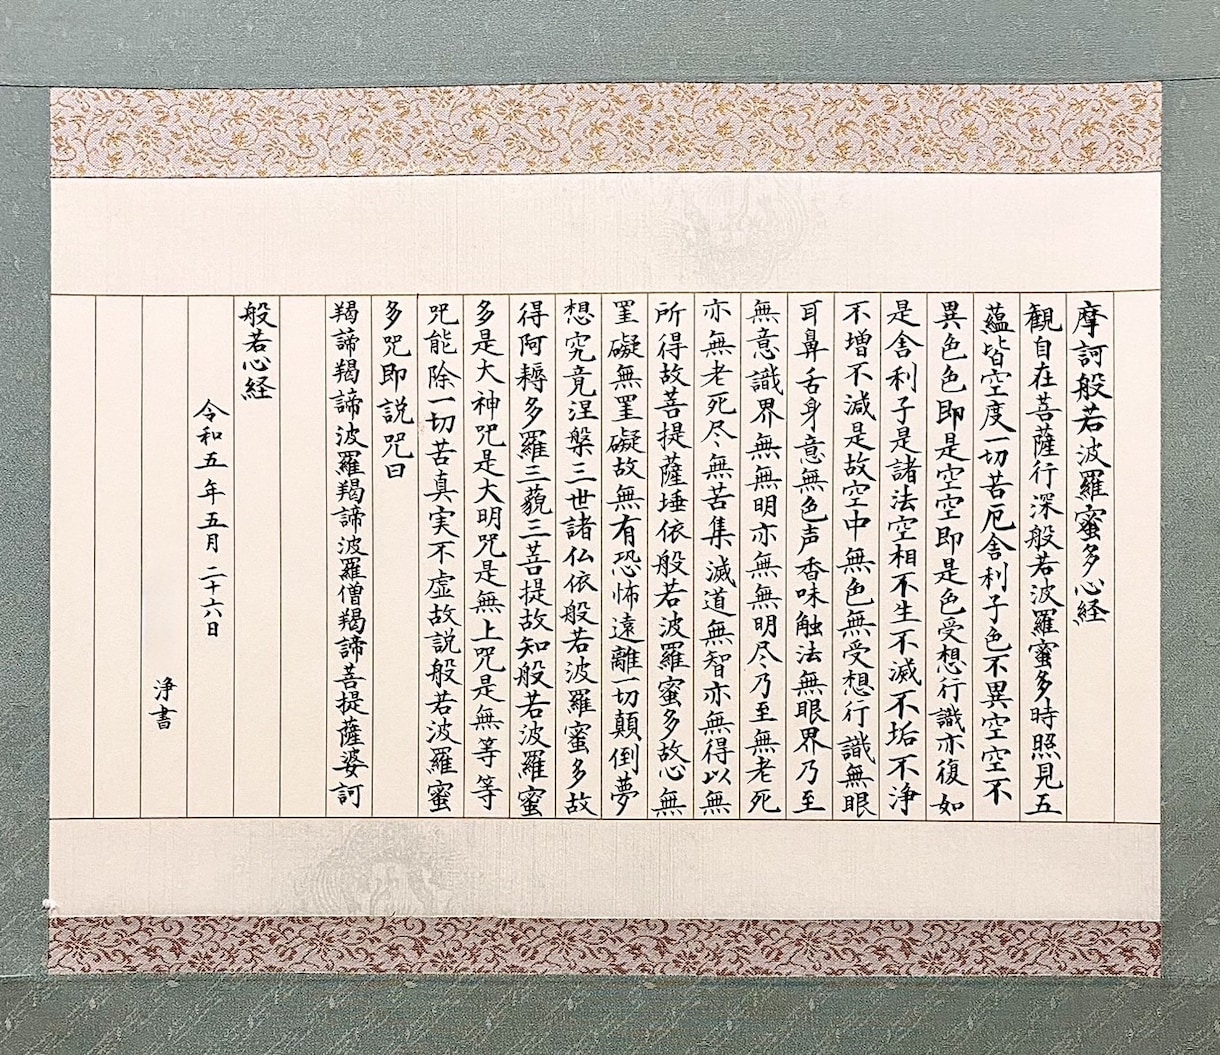 摩訶般若波羅蜜多心経
観自在菩薩行深般若波羅蜜多時照見五
蘊皆空度一切苦厄舎利子色不異空空不
異色色即是空空即是色受想行識亦復如
是舎利子是諸法空相不生不滅不垢不浄
不増不減是故空中無色無受想行識無眼
耳鼻舌身意無色声香味触法無眼界乃至
無意識界無無明亦無無明尽乃至無老死
亦無老死尽無苦集滅道無智亦無得以無
所得故菩提薩埵依般若波羅蜜多故心無
罣礙無罣礙故無有恐怖遠離一切顛倒夢
想究竟涅槃三世諸仏依般若波羅蜜多故
得阿耨多羅三藐三菩提故知般若波羅蜜
多是大神咒是大明咒是無上咒是無等等
咒能除一切苦真実不虚故説般若波羅蜜
多咒即説咒曰
羯諦羯諦波羅羯諦波羅僧羯諦菩提薩婆訶
般若心経
令和五年五月二十六日
浄書